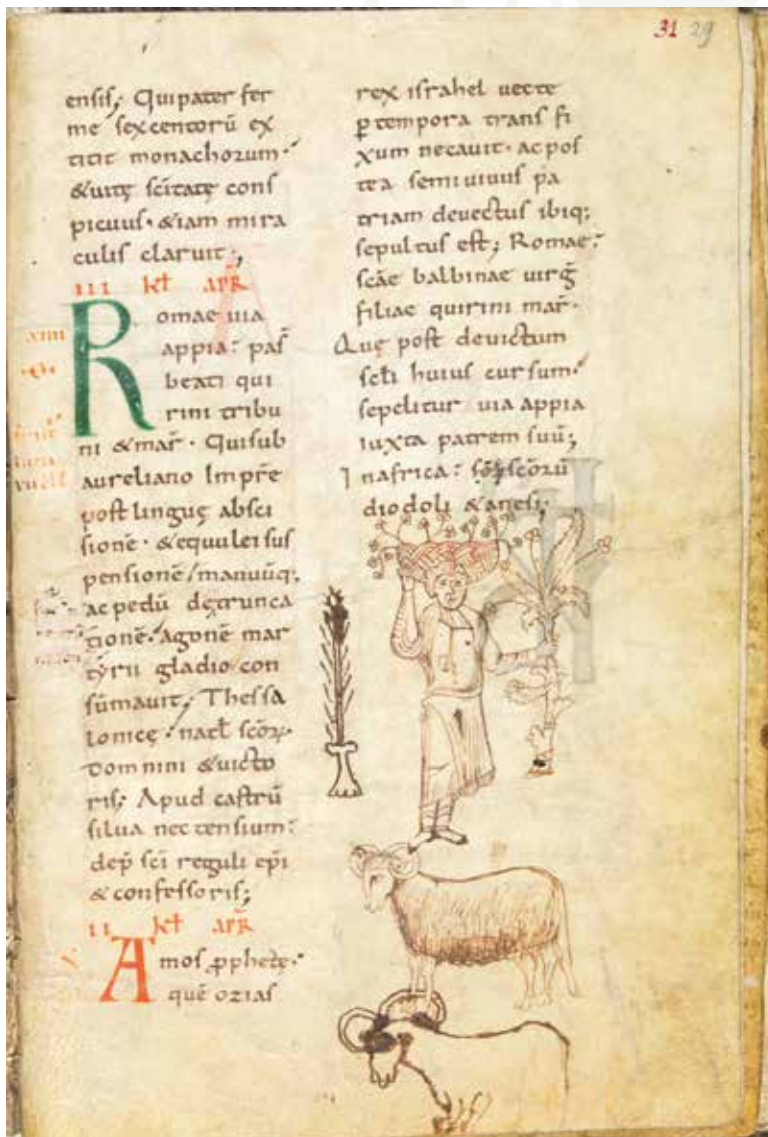 31 29
ensis; Qui pater fer
me sexcentorū ex
titit monachorum·
& uitę sc̄itatę cons
picuus· & iam mira
culis claruit;
III kł apr̄
Romae uia
appia: pas̄
beati qui
rini tribu
ni & mar̄· Qui sub
aureliano Impr̄e
post linguę absci
sionē· & equulei sus
pensionē/ manuūq;
ac pedū dętrunca
tionē· agonē mar
tyrii gladio con
sūmauit; Thessa
lonicę· natł sc̄oꝝ
domnini & uicto
ris; Apud castrū
silua nectensium:
dep̄ sc̄i reguli ep̄i
& confessoris;
II kł apr̄
Amos ꝓphetę·
quē ozias
rex israhel uecte
ꝑ tempora transfi
xum necauit· ac pos
tea semiuiuus pa
triam deuectus ibiq;
sepultus est; Romae:
sc̄ae balbinae uirḡ
filiae quirini mar̄·
Quę post deuictum
sc̄łi huius cursum·
sepelitur uia appia
iuxta patrem suū;
In africa: sc̄orū
diodoli & anesi;